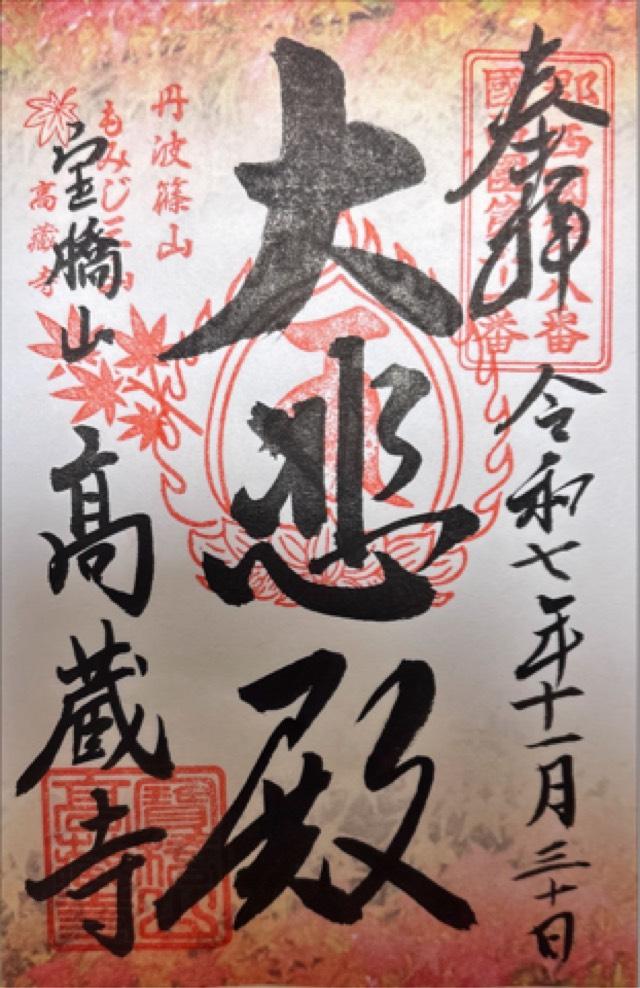 奉拝
令和七年十一月三十日
大悲殿
丹波篠山
もみじ三山
高蔵寺
宝橋山
高蔵寺